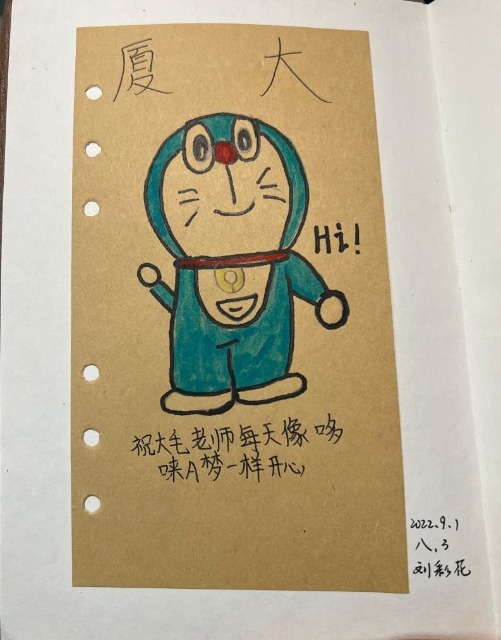 厦 大
Hi!
祝大毛老师每天像哆
啦A梦一样开心
2022.9.1
八.3
刘彩花